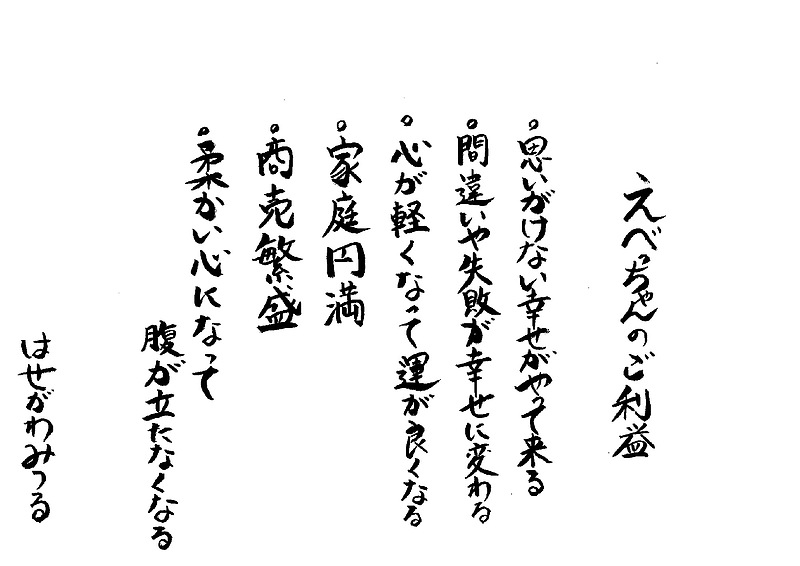 えべっちゃんのご利益
。思いがけない幸せがやって来る
。間違いや失敗が幸せに変わる
。心が軽くなって運が良くなる
。家庭円満
。商売繁盛
。柔かい心になって
腹が立たなくなる
はせがわみつる